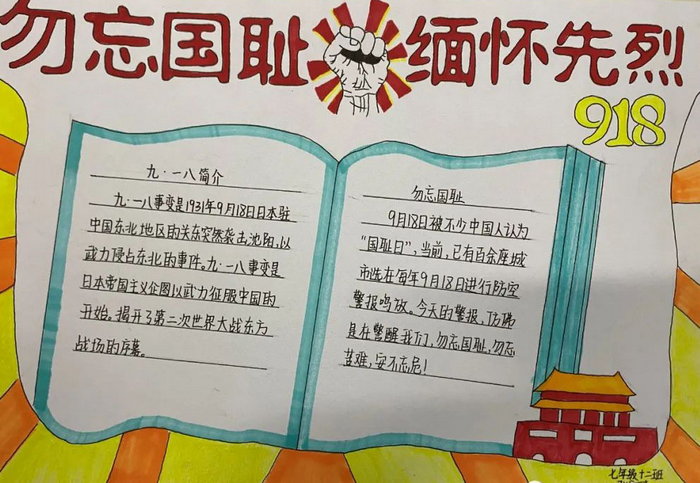 勿忘国耻 缅怀先烈
918
九·一八简介
九·一八事变是1931年9月18日日本驻
中国东北地区的关东突然袭击沈阳,以
武力侵占东北的事件。九·一八事变是
日本帝国主义企图以武力征服中国的
开始。揭开了第二次世界大战东方
战场的序幕。
勿忘国耻
9月18日被不少中国人认为
“国耻日”,当前,已有百余座城
市选在每年9月18日进行防空
警报鸣放。今天的警报,仿佛
是在警醒我们,勿忘国耻,勿忘
苦难,安不忘危!
七年级十二班